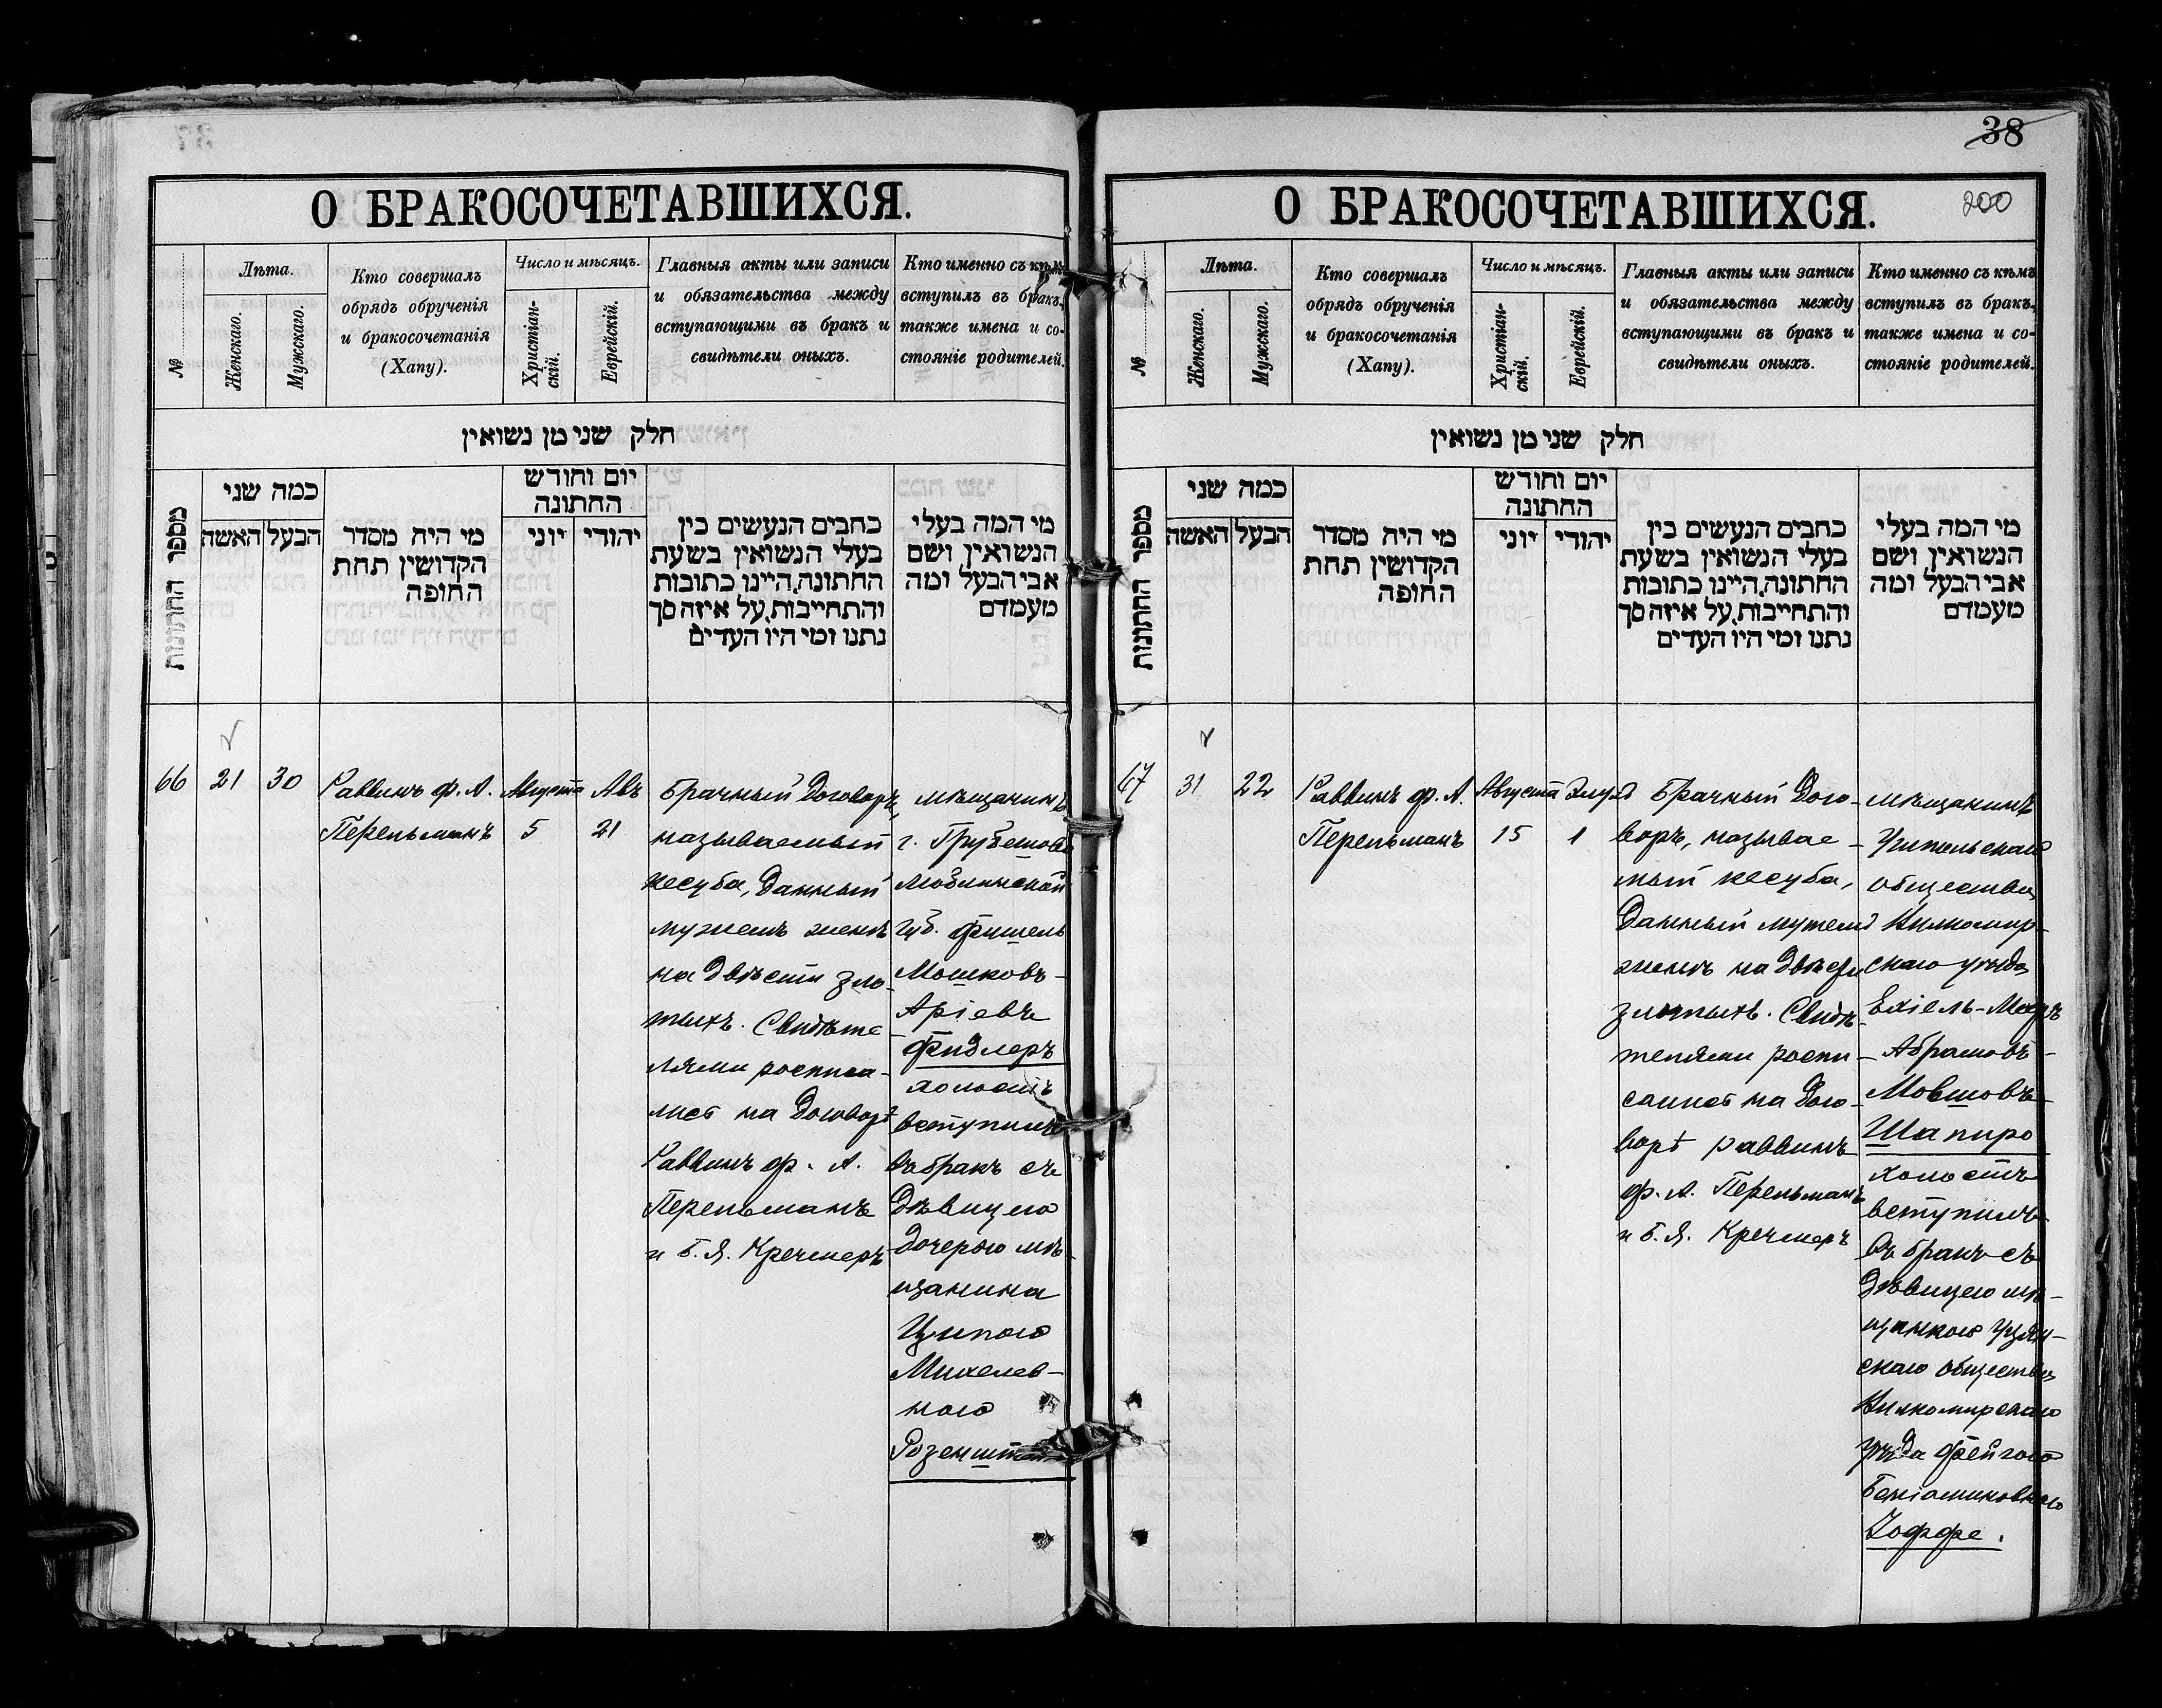 38
О БРАКОСОЧЕТАВШИХСЯ.
№
Лѣта.
Женскаго.
Мужскаго.
Кто совершалъ
обрядъ обрученія
и бракосочетанія
(Хапу).
Число и мѣсяцъ.
Христіан-
скій.
Еврейскій.
Главныя акты или записи
и обязательства между
вступающими въ бракъ и
свидѣтели оныхъ.
Кто именно съ кѣмъ
вступилъ въ бракъ,
также имена и со-
стояніе родителей.
חלק שני מן נשואין
מספר החתונות
כמה שני
האשה
הבעל
מי היה מסדר
הקדושין תחת
החופה
יום וחודש
החתונה
יוני
יהודי
כתבים הנעשים בין
בעלי הנשואין בשעת
החתונה, היינו כתובות
והתחייבות, על איזה סך
נתנו ומי היו העדים
מי המה בעלי
הנשואין ושם
אבי הבעל ומה
מעמדם
66
21
30
Раввинъ Ф. А.
Перельманъ
Августа
5
Авъ
21
Брачный договоръ,
называемый
кесуба, данный
мужемъ женѣ
на двѣсти зло-
тыхъ. Свидѣте
лями росписа-
лись на договорѣ
Раввинъ Ф. А.
Перельманъ
и Б. Я. Кречмеръ
мѣщанинъ
г. Грубешова
Люблинской
губ. Фишель
Мошковъ-
Аріевъ
Фидлеръ
холостъ
вступилъ
въ бракъ съ
дѣвицею
дочерью мѣ-
щанина
Ципою
Михелев-
ною
Розенштейнъ
О БРАКОСОЧЕТАВШИХСЯ.
200
№
Лѣта.
Женскаго.
Мужскаго.
Кто совершалъ
обрядъ обрученія
и бракосочетанія
(Хапу).
Число и мѣсяцъ.
Христіан-
скій.
Еврейскій.
Главныя акты или записи
и обязательства между
вступающими въ бракъ и
свидѣтели оныхъ.
Кто именно съ кѣмъ
вступилъ въ бракъ,
также имена и со-
стояніе родителей.
חלק שני מן נשואין
מספר החתונות
כמה שני
האשה
הבעל
מי היה מסדר
הקדושין תחת
החופה
יום וחודש
החתונה
יוני
יהודי
כתבים הנעשים בין
בעלי הנשואין בשעת
החתונה, היינו כתובות
והתחייבות, על איזה סך
נתנו ומי היו העדים
מי המה בעלי
הנשואין ושם
אבי הבעל ומה
מעמדם
67
31
22
Раввинъ Ф. А.
Перельманъ
Августа
15
Элулъ
1
Брачный дого-
воръ, называе-
мый кесуба,
данный мужемъ
женѣ на двѣсти
злотыхъ. Свидѣ-
телями роспи-
сались на дого-
ворѣ раввинъ
Ф. А. Перельманъ
и Б. Я. Кречмеръ
мѣщанинъ
общества
Вилкомир-
скаго уѣзда
Ехіель-Мееръ
Абрамовъ-
Мовшовъ-
Шапиро
холостъ
вступилъ
въ бракъ съ
дѣвицею мѣ-
щанкою Уцян-
скаго общества
Вилкомирскаго
уѣзда Фейгою
Беніаминовною
Іоффе.